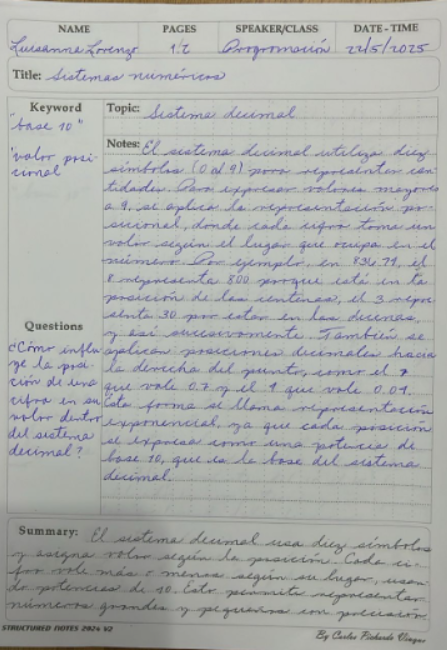 NAME PAGES SPEAKER/CLASS DATE - TIME
Luisanna Lorenzo 1/2 Programación 22/5/2025
Title: Sistemas numéricos
Keyword
"base 10"
"valor posi-
cional
Topic: Sistema decimal
Notes: El sistema decimal utiliza diez
símbolos (0 al 9) para representar can-
tidades. Para expresar valores mayores
a 9, se aplica la representación po-
sicional, donde cada cifra toma un
valor según el lugar que ocupa en el
número. Por ejemplo, en 836.74, el
8 representa 800 porque está en la
posición de las centenas, el 3 repre
senta 30 por estar en las decenas,
y así sucesivamente. También se
aplican posiciones decimales hacia
la derecha del punto, como el 7
que vale 0.7 y el 4 que vale 0.04.
Esta forma se llama representación
exponencial, ya que cada posición
se expresa como una potencia de
base 10, que es la base del sistema
decimal.
Questions
¿Cómo influ
ye la posi-
ción de una
cifra en su
valor dentro
del sistema
decimal?
Summary: El sistema decimal usa diez símbolos
y asigna valor según la posición. Cada ci-
fra vale más o menos según su lugar, usan-
do potencias de 10. Esto permite representar
números grandes y pequeños con precisión
STRUCTURED NOTES 2024 V2
By Carlos Pichardo Vinque